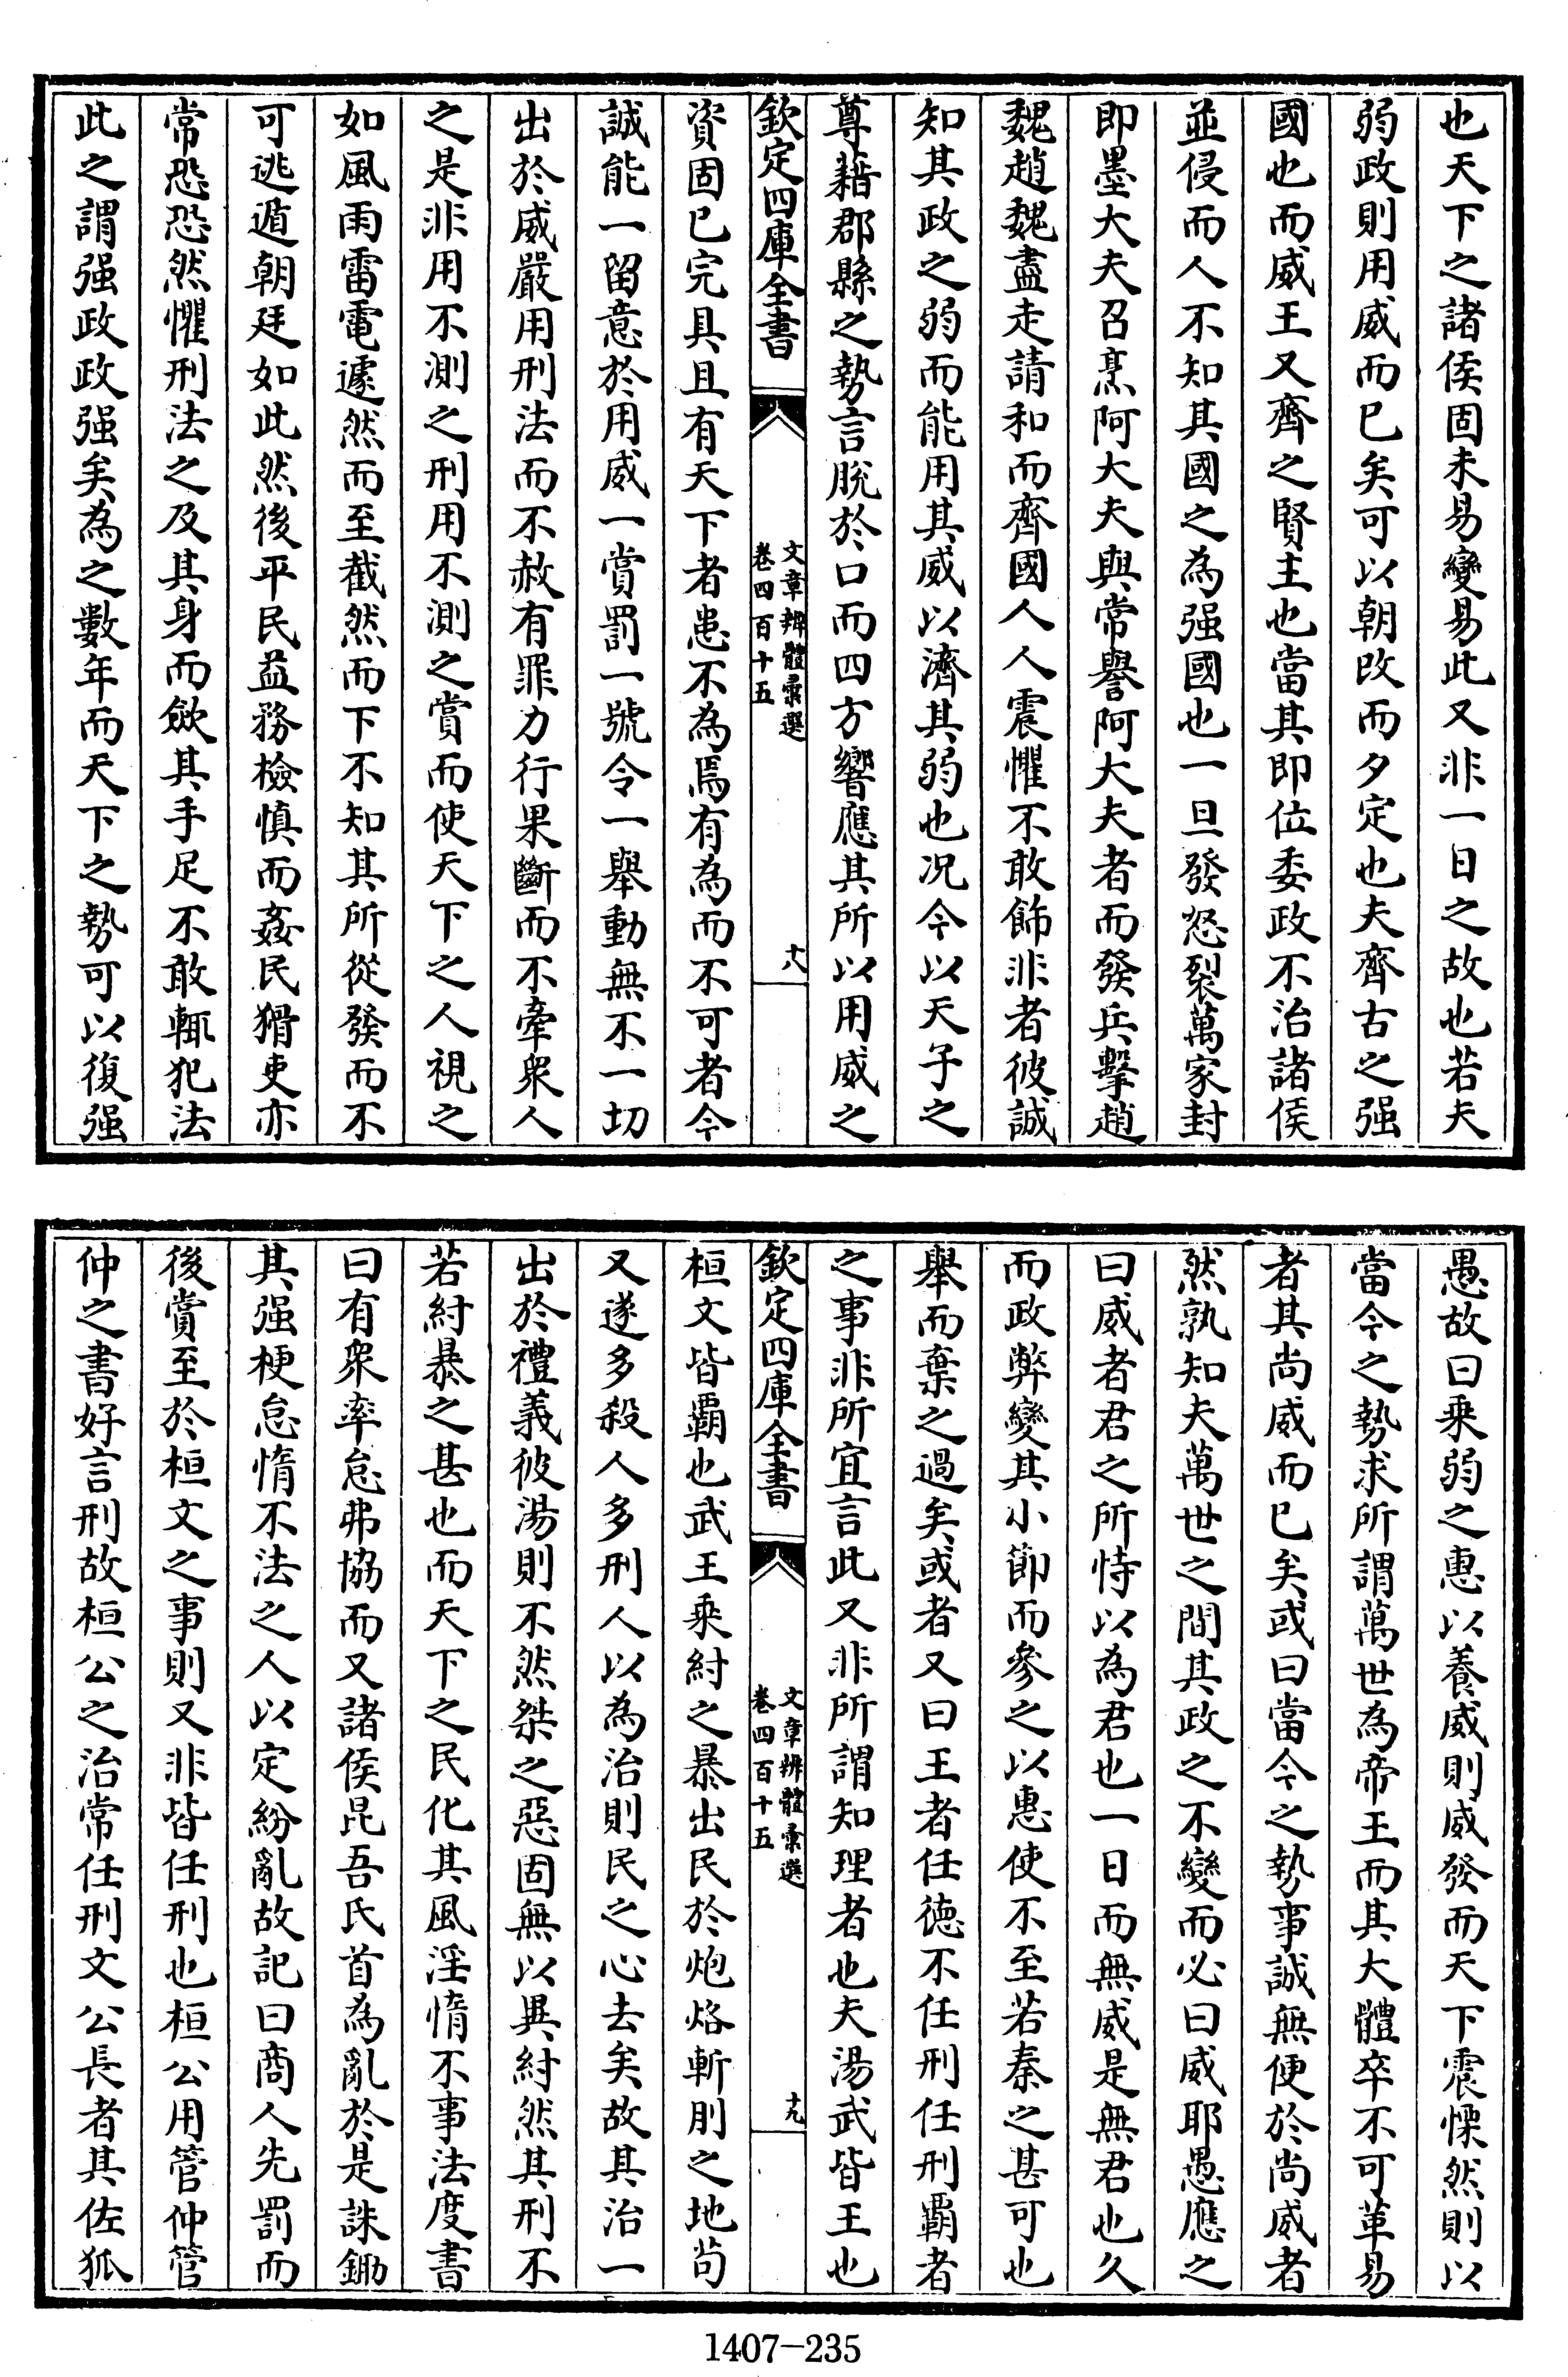 也天下之諸侯固未易變易此又非一日之故也若夫
弱政則用威而已矣可以朝改而夕定也夫齊古之强
國也而威王又齊之賢主也當其即位委政不治諸侯
並侵而人不知其國之為强國也一旦發怒裂萬家封
即墨大夫召烹阿大夫與常譽阿大夫者而發兵擊趙
魏趙魏盡走請和而齊國人人震懼不敢飾非者彼誠
知其政之弱而能用其威以濟其弱也况今以天子之
尊藉郡縣之勢言脫於口而四方響應其所以用威之
欽定四庫全書
文章辨體彙選
卷四百十五
十八
資固已完具且有天下者患不為焉有為而不可者今
誠能一留意於用威一賞罰一號令一舉動無不一切
出於威嚴用刑法而不赦有罪力行果斷而不牽衆人
之是非用不測之刑用不測之賞而使天下之人視之
如風雨雷電遽然而至截然而下不知其所從發而不
可逃遁朝廷如此然後平民益務檢慎而姦民猾吏亦
常恐恐然懼刑法之及其身而斂其手足不敢輒犯法
此之謂强政政强矣為之數年而天下之勢可以復强
愚故曰乘弱之惠以養威則威發而天下震慄然則以
當今之勢求所謂萬世為帝王而其大體卒不可革易
者其尚威而已矣或曰當今之勢事誠無便於尚威者
然孰知夫萬世之間其政之不變而必曰威耶愚應之
曰威者君之所恃以為君也一日而無威是無君也久
而政弊變其小節而參之以惠使不至若秦之甚可也
舉而棄之過矣或者又曰王者任德不任刑任刑霸者
之事非所宜言此又非所謂知理者也夫湯武皆王也
欽定四庫全書
文章辨體彙選
卷四百十五
十九
桓文皆霸也武王乘紂之暴出民於炮烙斬刖之地苟
又遂多殺人多刑人以為治則民之心去矣故其治一
出於禮義彼湯則不然桀之惡固無以異紂然其刑不
若紂暴之甚也而天下之民化其風淫惰不事法度書
曰有衆率怠弗協而又諸侯昆吾氏首為亂於是誅鋤
其强梗怠惰不法之人以定紛亂故記曰商人先罰而
後賞至於桓文之事則又非皆任刑也桓公用管仲管
仲之書好言刑故桓公之治常任刑文公長者其佐狐
1407-235